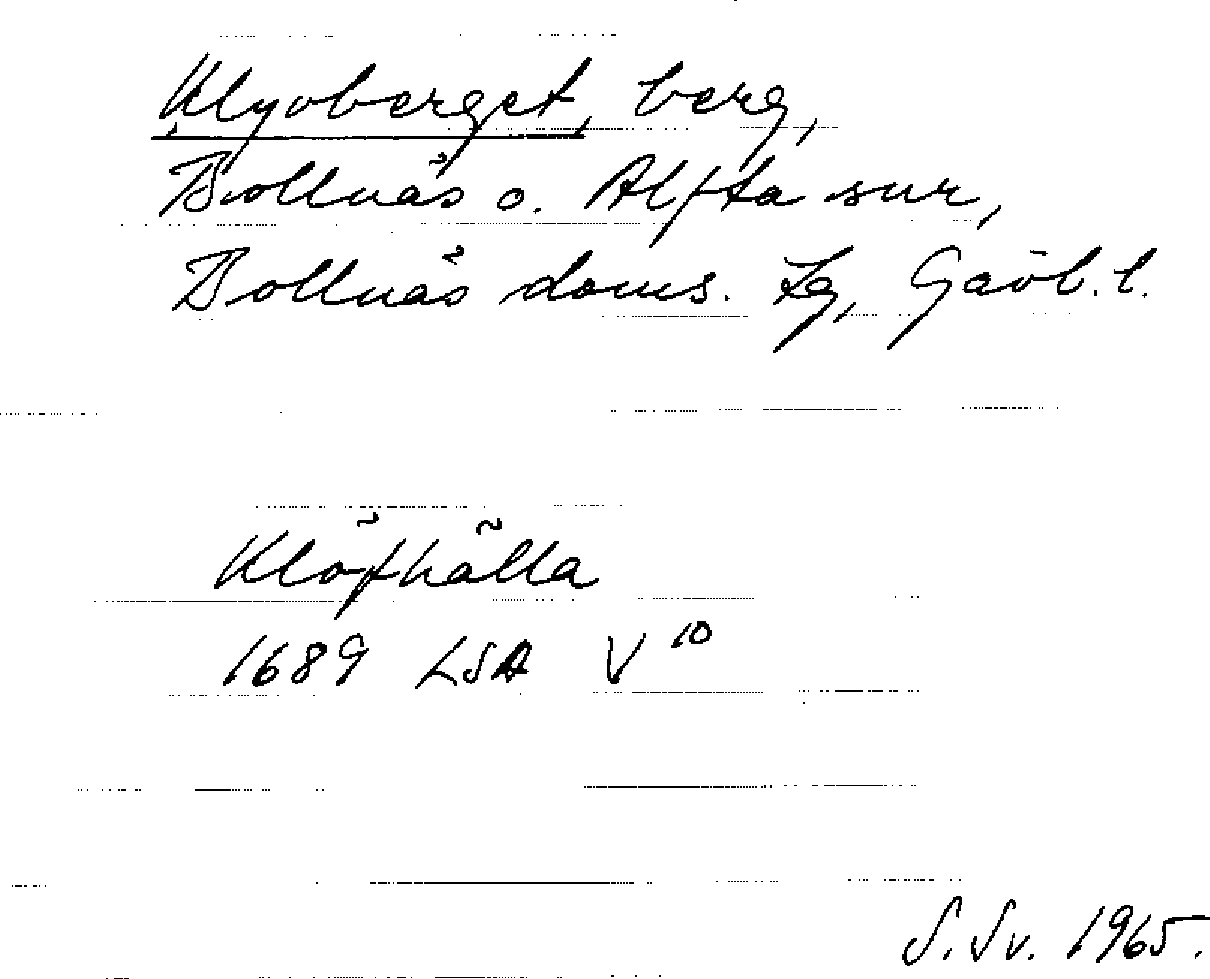 Klyvberget, berg,
Bollnäs o. Alfta snr,
Bollnäs doms. tg, Gävl. l.
Klöfhälla
1689 LSA V 10
S. Sv. 1965.